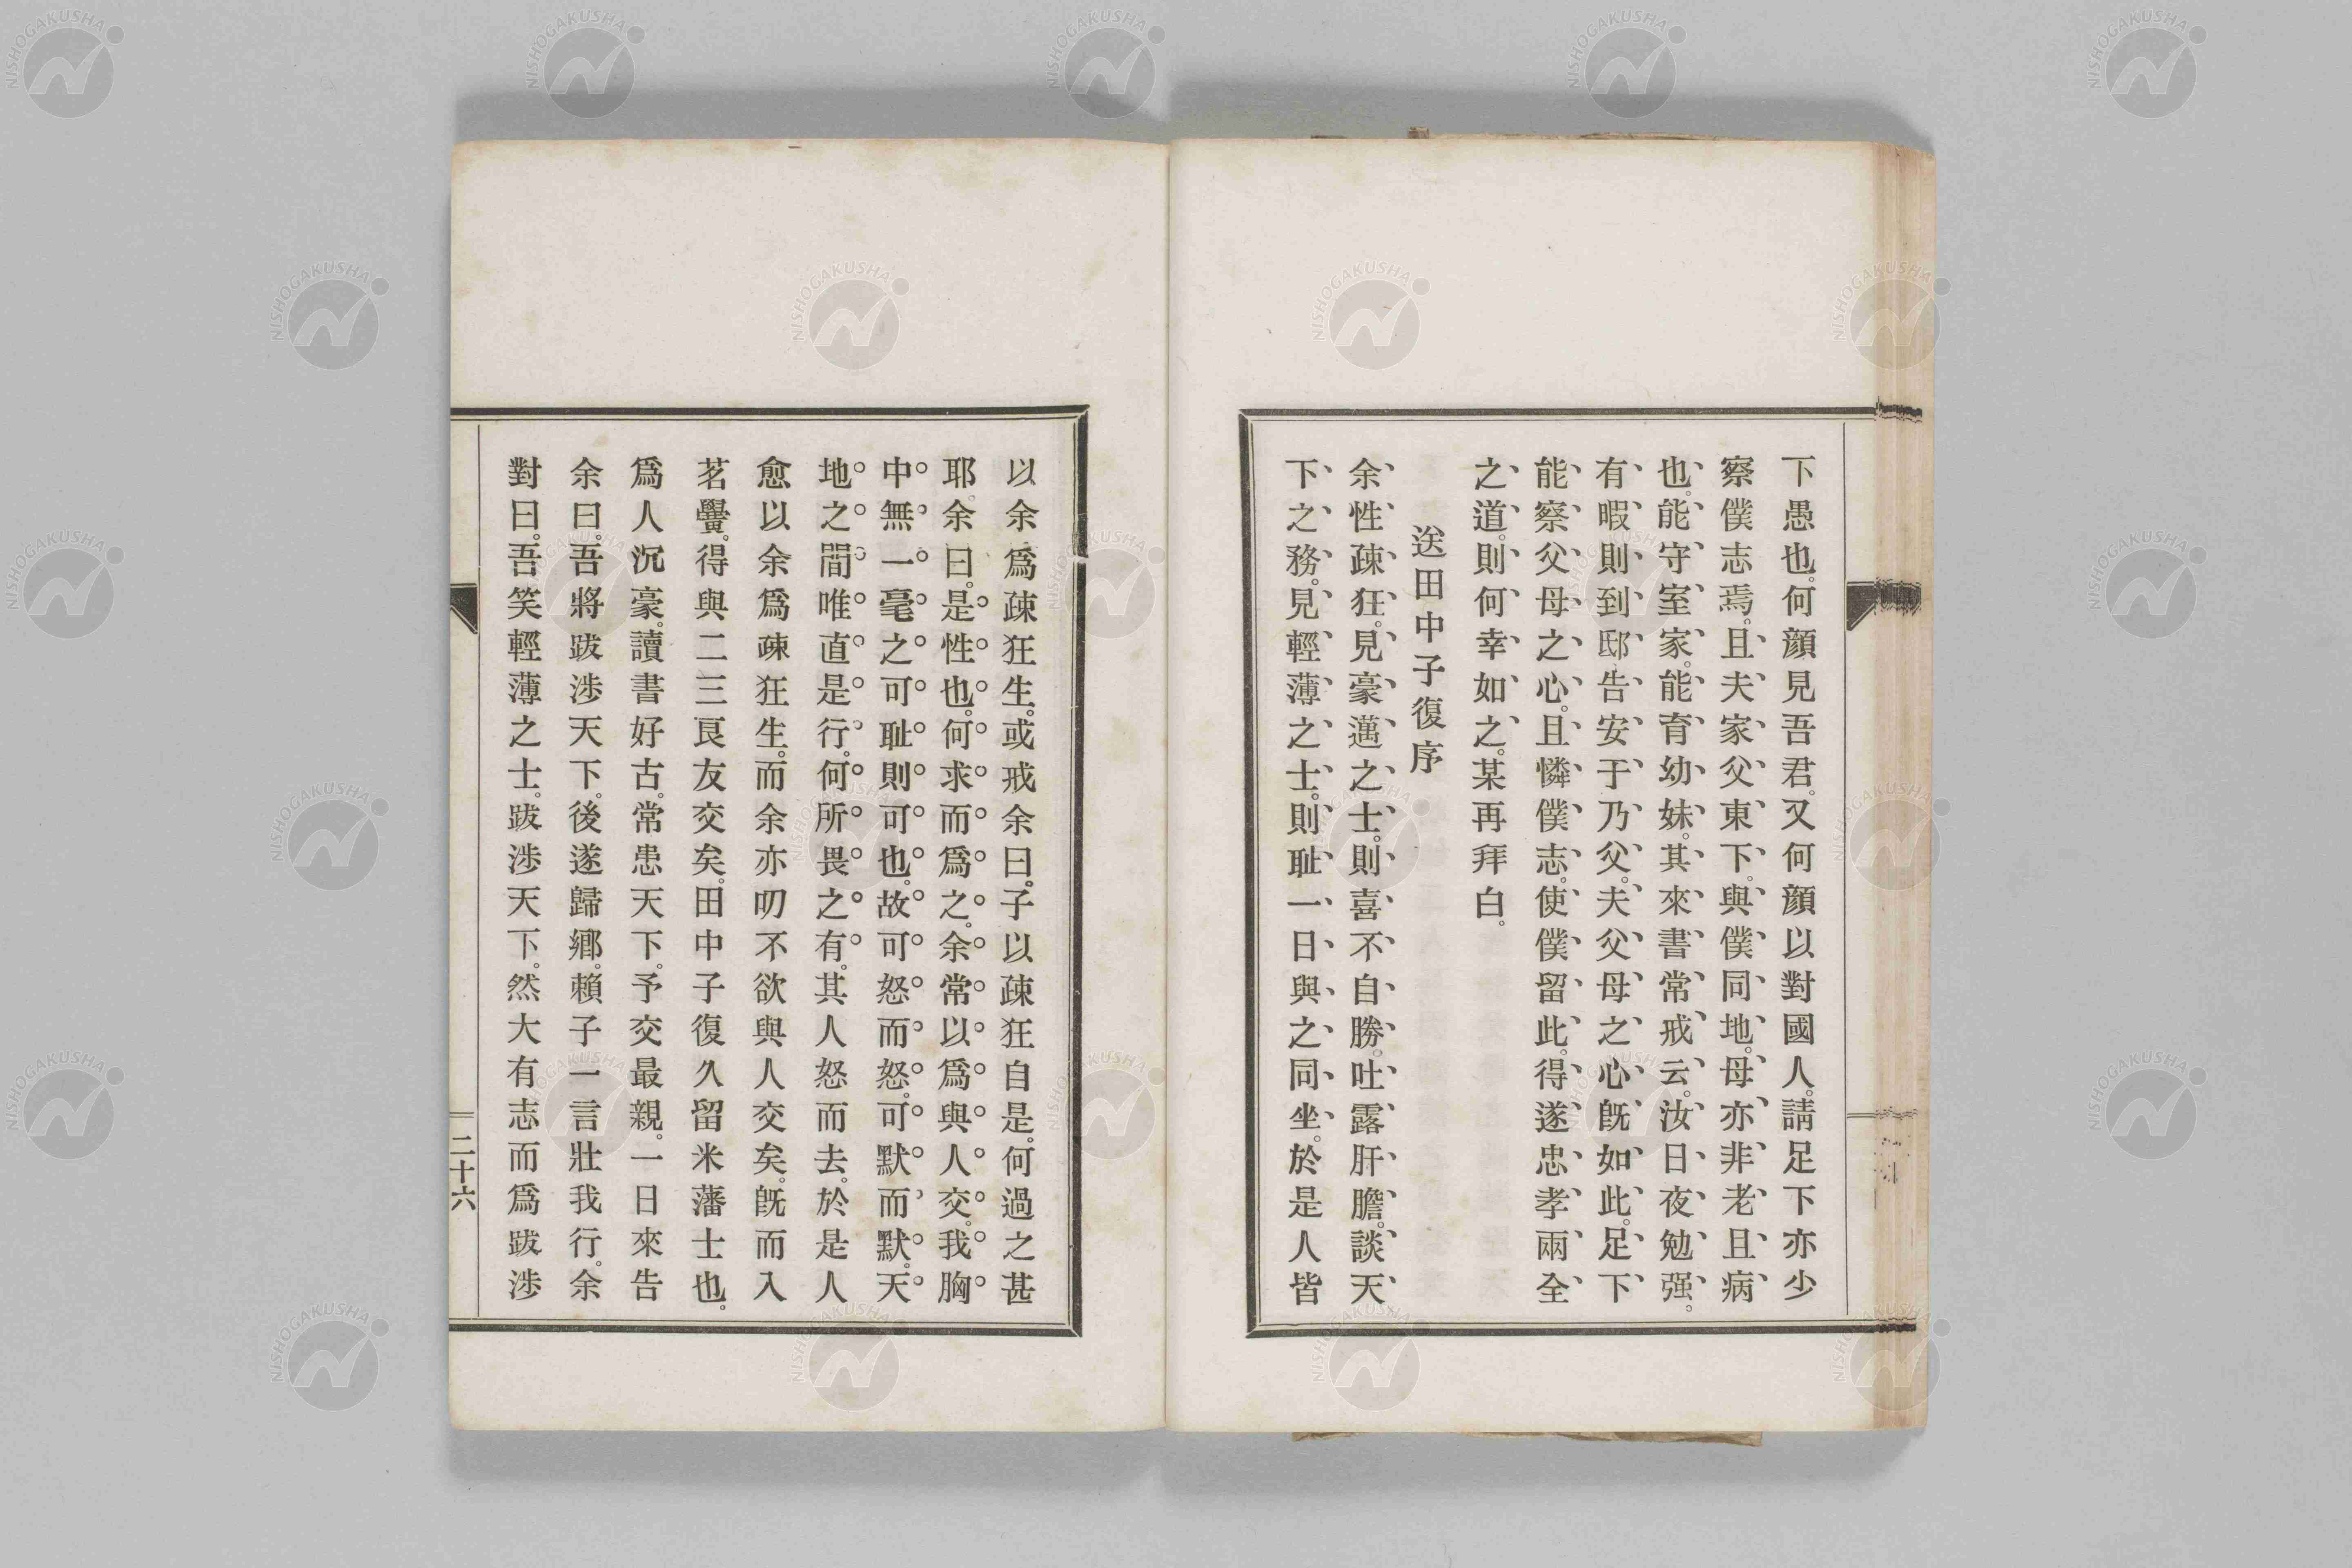 下愚也。何顏見吾君。又何顏以對國人。請足下亦少
察僕志焉。且夫家父東下。與僕同地。母亦非老且病
也。能守室家。能育幼妹。其來書常戒云。汝日夜勉强。
有暇則到邸告安于乃父。夫父母之心既如此。足下
能察父母之心。且憐僕志。使僕留此。得遂忠孝兩全
之道。則何幸如之。某再拜白。
送田中子復序
余性疎狂。見豪邁之士。則喜不自勝。吐露肝膽。談天
下之務。見輕薄之士。則耻一日與之同坐。於是人皆
以余爲疎狂生。或戒余曰。子以疎狂自是。何過之甚
耶。余曰。是性也。何求而爲之。余常以爲與人交。我胸
中無一毫之可耻則可也。故可怒而怒。可默而默。天
地之間唯直是行。何所畏之有。其人怒而去。於是人
愈以余爲疎狂生。而余亦叨不欲與人交矣。既而入
茗黌。得與二三良友交矣。田中子復久留米藩士也。
爲人沉豪。讀書好古。常患天下。予交最親。一日來告
余曰。吾將跋渉天下。後遂歸鄕。賴子一言壯我行。余
對曰。吾笑輕薄之士。跋渉天下。然大有志而爲跋渉
二十六
NISHOGAKUSHA